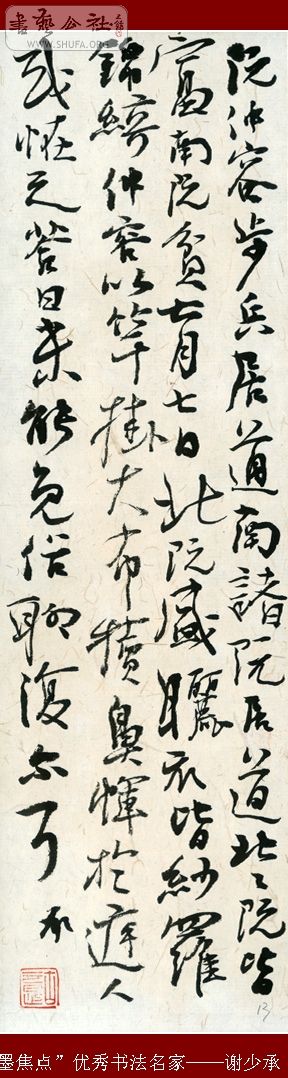 書藝公社
WWW.SHUFA.ORG
阮仲容步兵居道南諸阮居道北〻阮皆
富南阮貧七月七日北阮盛曬衣皆紗羅
錦綺仲容以竿掛大布犢鼻幝於庭人
或怪之答曰未能免俗聊復尔耳 承
墨焦点”优秀书法名家——谢少承